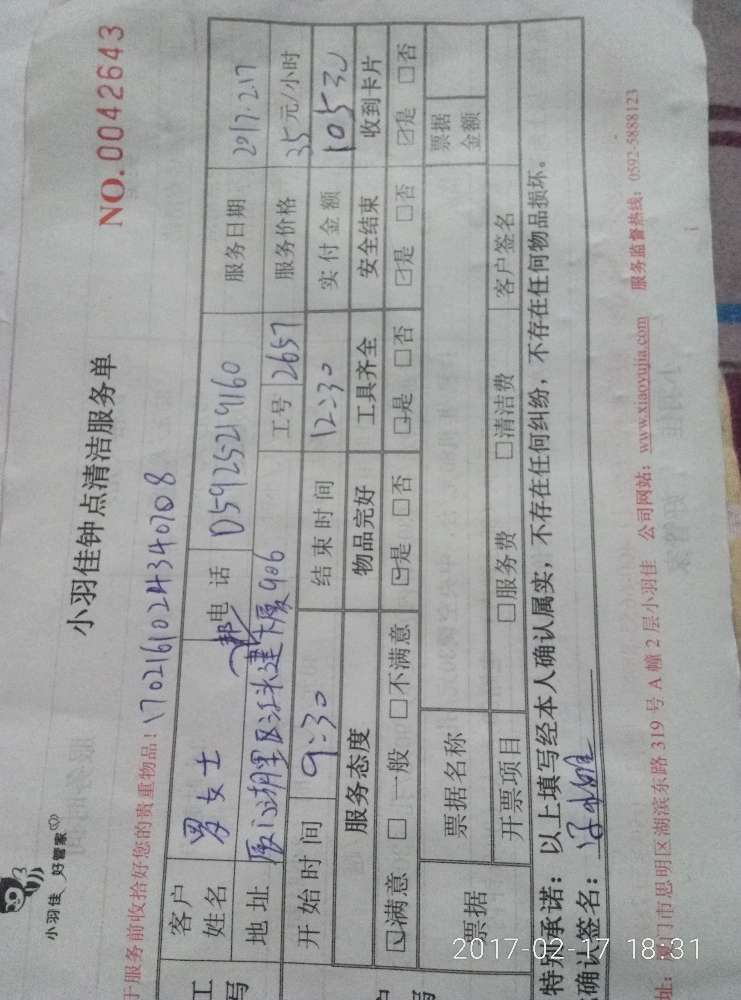 小羽佳 好管家
小羽佳钟点清洁服务单
NO.0042643
于服务前收拾好您的贵重物品！1702161024340708
客户姓名 女士 电话 D5925219160 服务日期 2017.2.17
地址 厦门湖里区江头建 大厦906 工号 2657 服务价格 35元/小时
开始时间 9:30 结束时间 12:30 实付金额 105元
服务态度 物品完好 工具齐全 安全结束 收到卡片
☑满意 □一般 □不满意 ☑是 □否 ☑是 □否 ☑是 □否 ☑是 □否
票据 票据名称 票据金额
开票项目 □服务费 □清洁费 客户签名
特别承诺：以上填写经本人确认属实，不存在任何纠纷，不存在任何物品损坏。
确认签名：
址：厦门市思明区湖滨东路319号A幢2层小羽佳 公司网站：www.xiaoyujia.com 服务监督热线：0592-5888123
2017-02-17 18:31